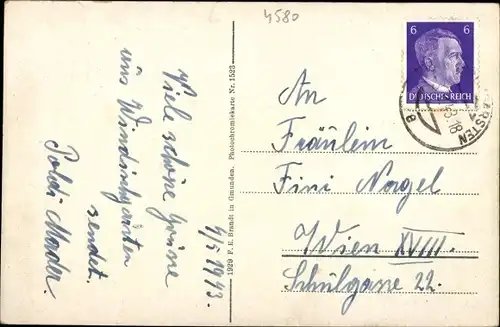 4580
6 6
DEUTSCHES REICH
Viele schöne Grüsse
aus Windischgarsten
sendet
4/5 1943.
1929 F. E. Brandt in Gmunden. Photochromiekarte Nr. 1523
An
Fräulein
Fini Nagel
Wien XVIII.
Schulgasse 22.